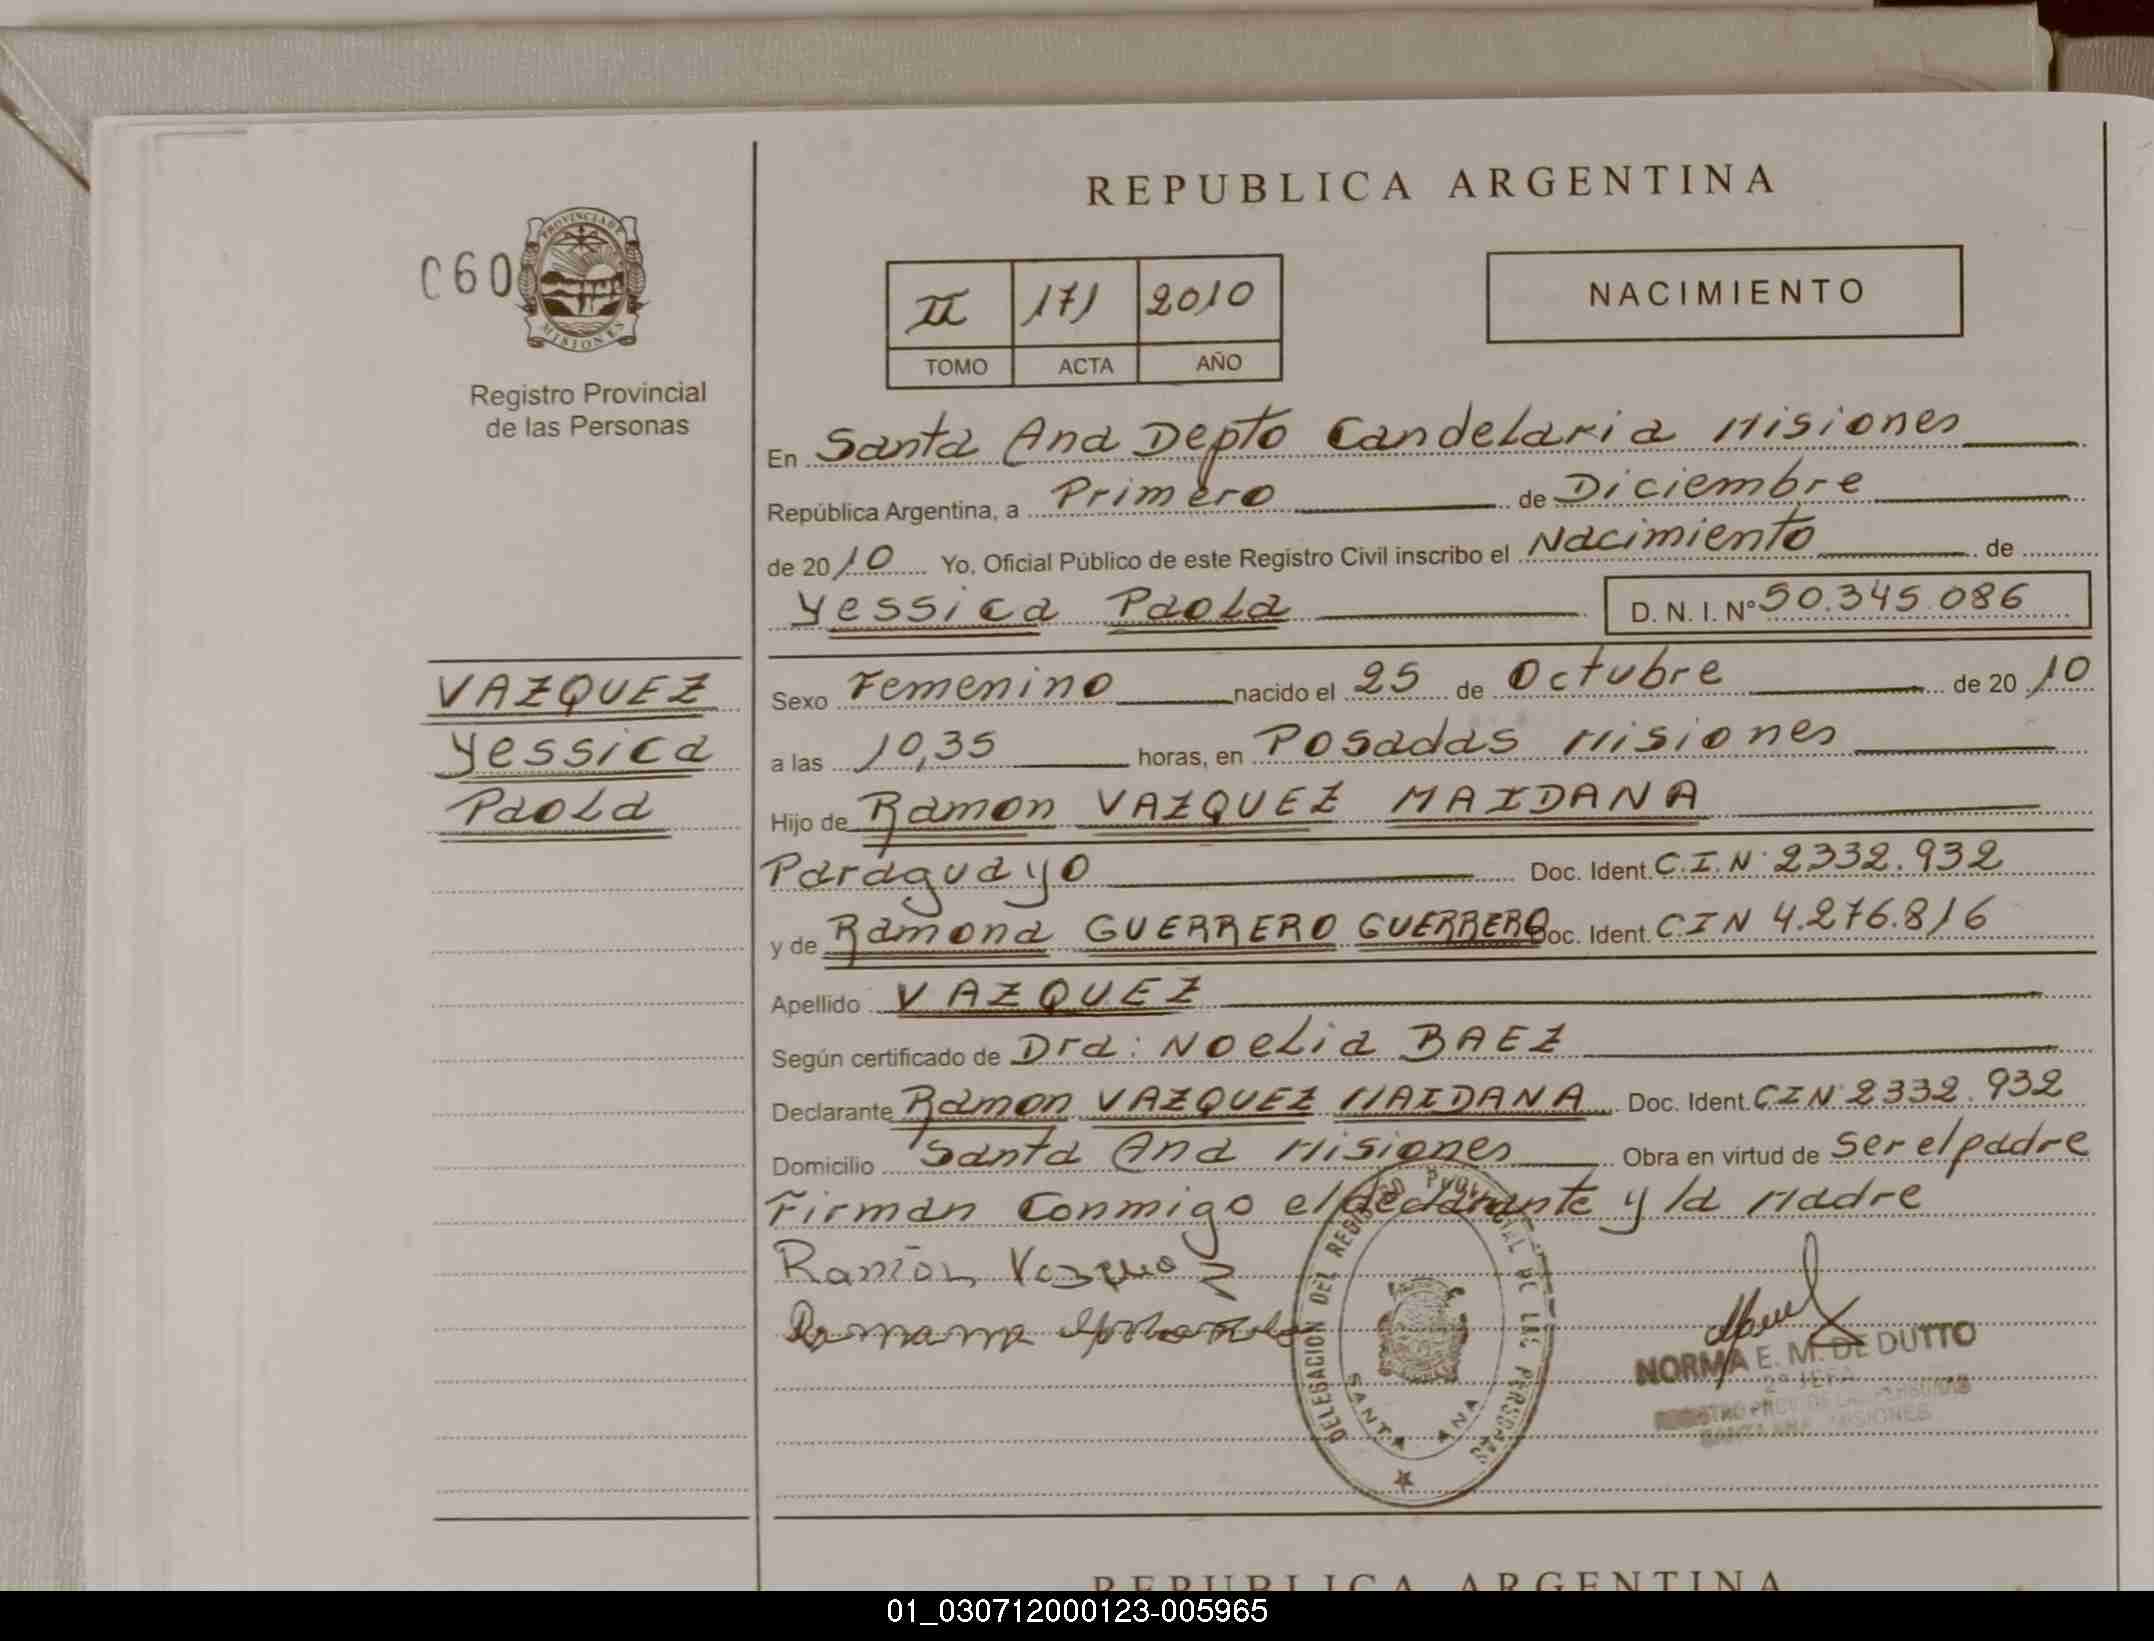 REPUBLICA ARGENTINA
C60
PROVINCIA DE
MISIONES
Registro Provincial
de las Personas
II 171 2010
TOMO ACTA AÑO
NACIMIENTO
En Santa Ana Depto Candelaria Misiones
República Argentina, a Primero de Diciembre
de 2010 Yo, Oficial Público de este Registro Civil inscribo el Nacimiento de
Yessica Paola D. N. I. N° 50.345.086
VAZQUEZ
Yessica
Paola
Sexo Femenino nacido el 25 de Octubre de 2010
a las 10,35 horas, en Posadas Misiones
Hijo de Ramon VAZQUEZ MAIDANA
Paraguayo Doc. Ident. C.I.N° 2332.932
y de Ramona GUERRERO GUERRERO Doc. Ident. CIN 4.276.816
Apellido VAZQUEZ
Según certificado de Dra: Noelia BAEZ
Declarante Ramon VAZQUEZ MAIDANA Doc. Ident. CIN° 2332.932
Domicilio Santa Ana Misiones Obra en virtud de Ser el padre
Firman Conmigo el declarante y la Madre
Ramón Vazquez
DELEGACION DEL REGISTRO PROVINCIAL DE LAS PERSONAS
SANTA ANA
NORMA E. M. DE DUTTO
2° JEFA
REGISTRO PROV. DE LAS PERSONAS
SANTA ANA MISIONES
REPUBLICA ARGENTINA
01_030712000123-005965